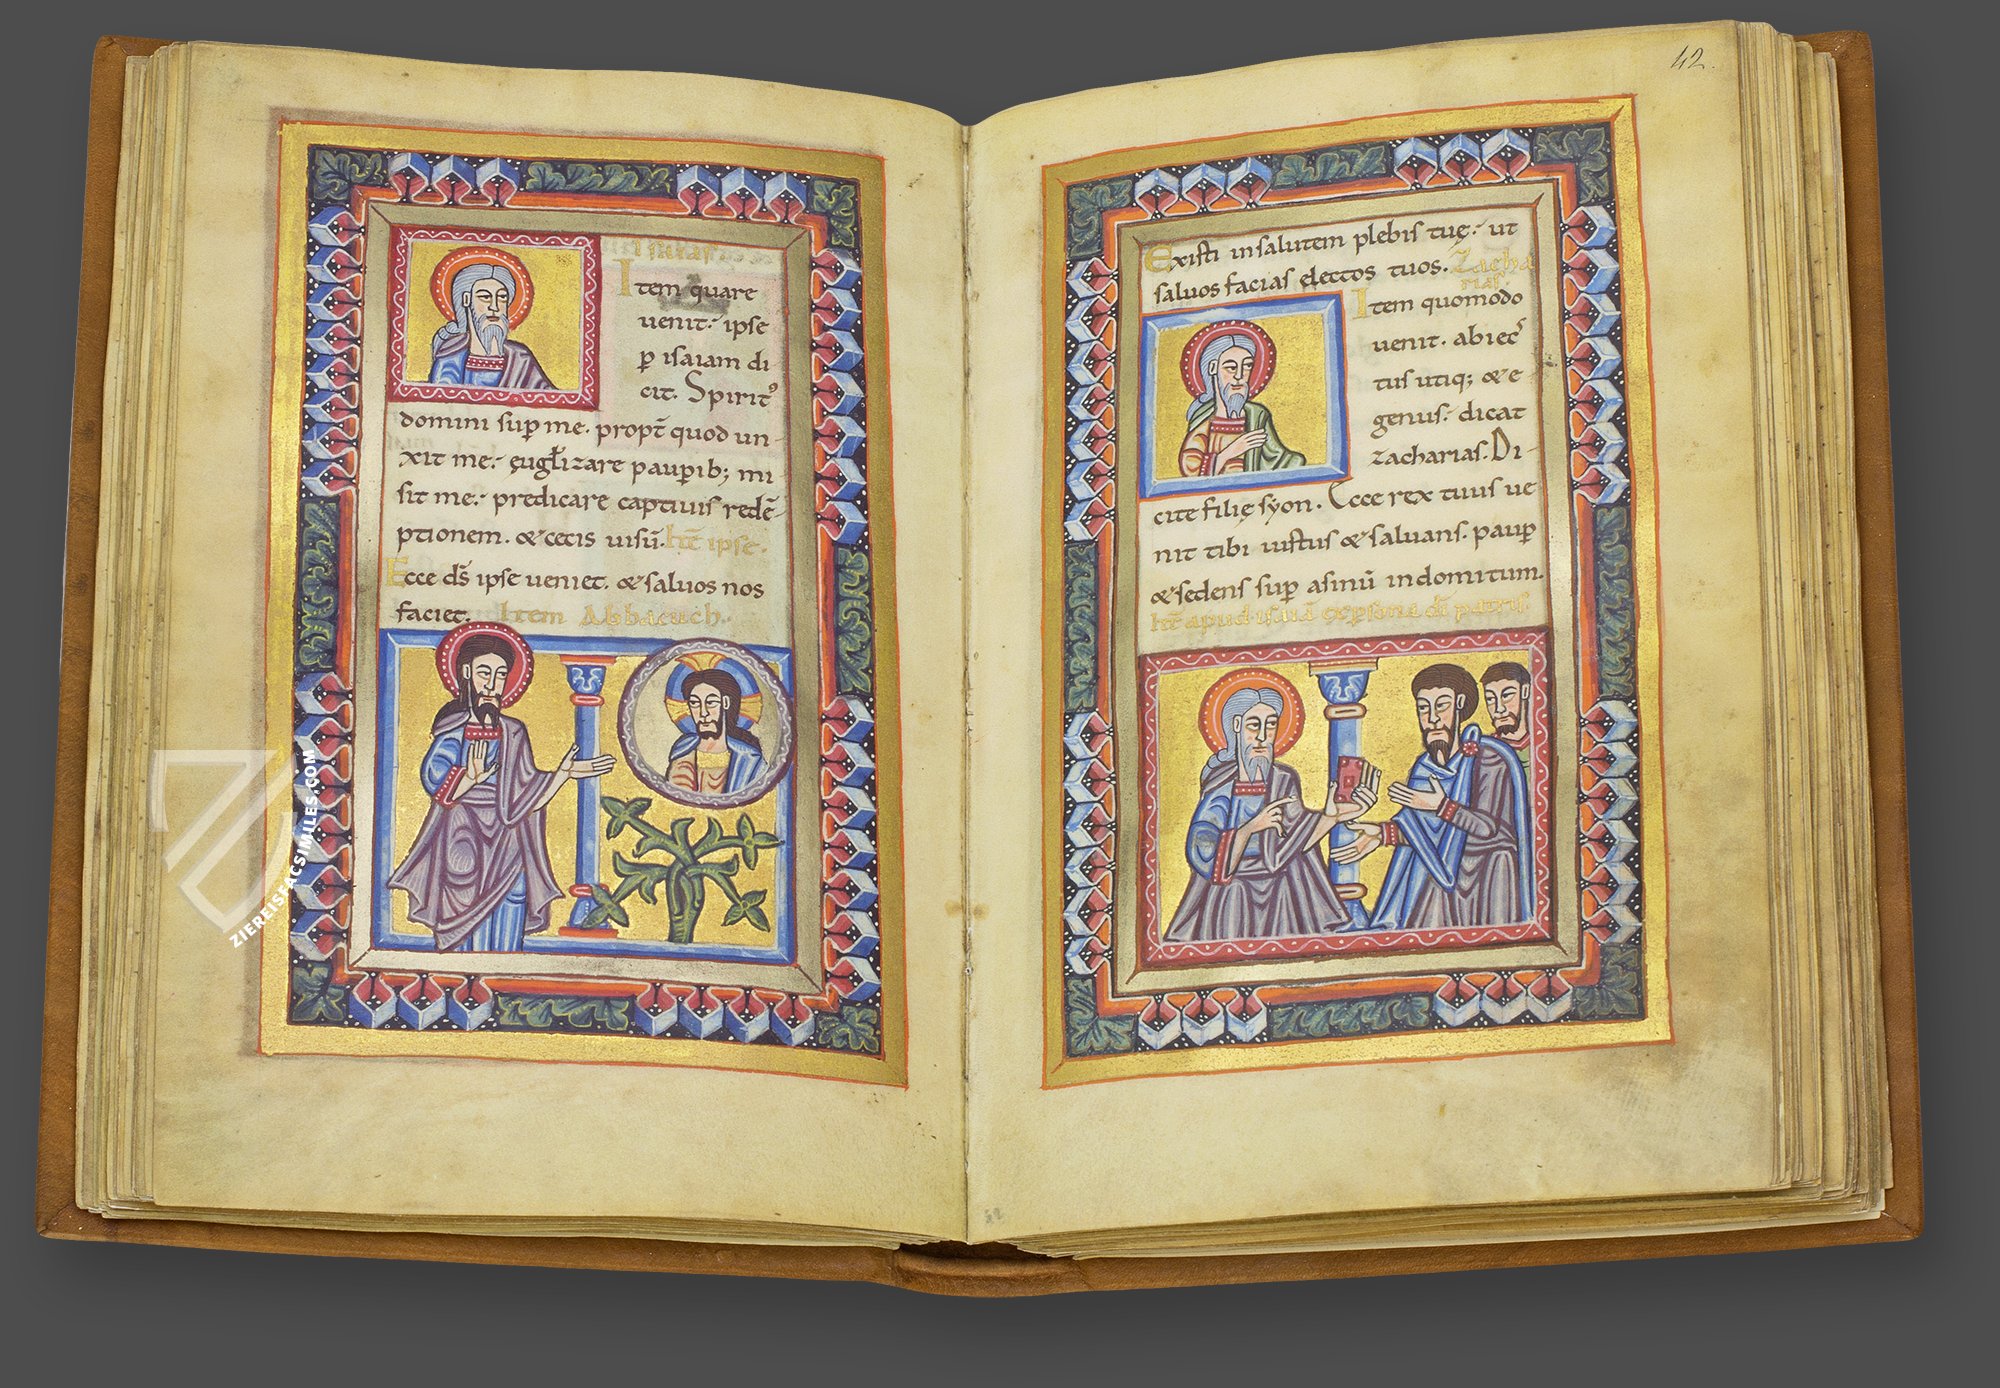 Item quare
uenit· ipse
ꝑ isaiam di
cit. Spiritꝰ
domini suꝑ me· propt̄ quod un-
xit me· ęugl̄izare pauꝑib; mi
sit me· predicare captiuis redē-
ptionem. & cecis uisū. Itē ipse.
Ecce dn̄s ipse ueniet. & saluos nos
faciet. Item Abbacuch.
42.
Existi in salutem plebis tuę· ut
saluos facias electos tuos. Zacha
rias.
Item quomodo
uenit. abiec
tus utiq; & e-
genus· dicat
zacharias. Di-
cite filię syon. Ecce rex tuus ue
nit tibi iustus & saluans. pauꝑ
& sedens suꝑ asinū indomitum.
Itē apud isaiā ex ꝑsona dī patris
ZIEREISFACSIMILES.COM